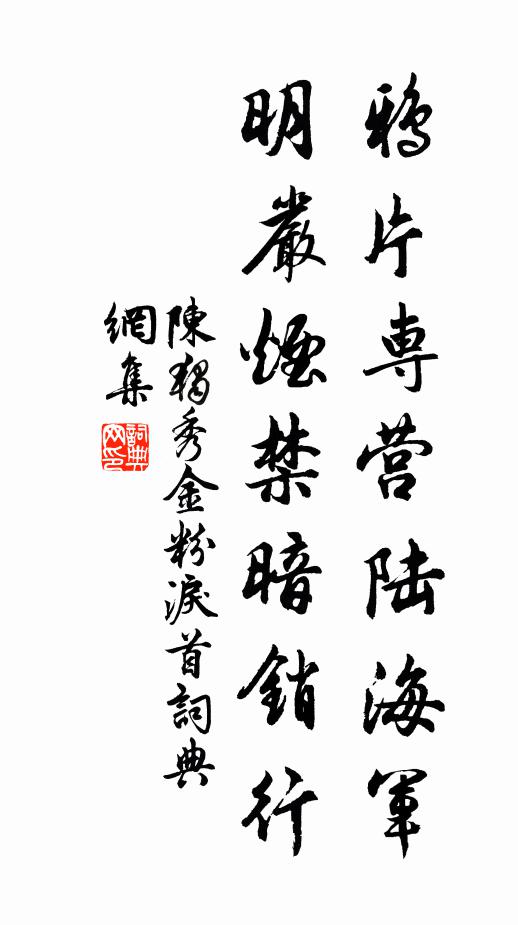 鸦片専营陆海軍
明嚴煙禁暗銷行
陳獨秀金粉淚首詞典
網集
詞典
网印